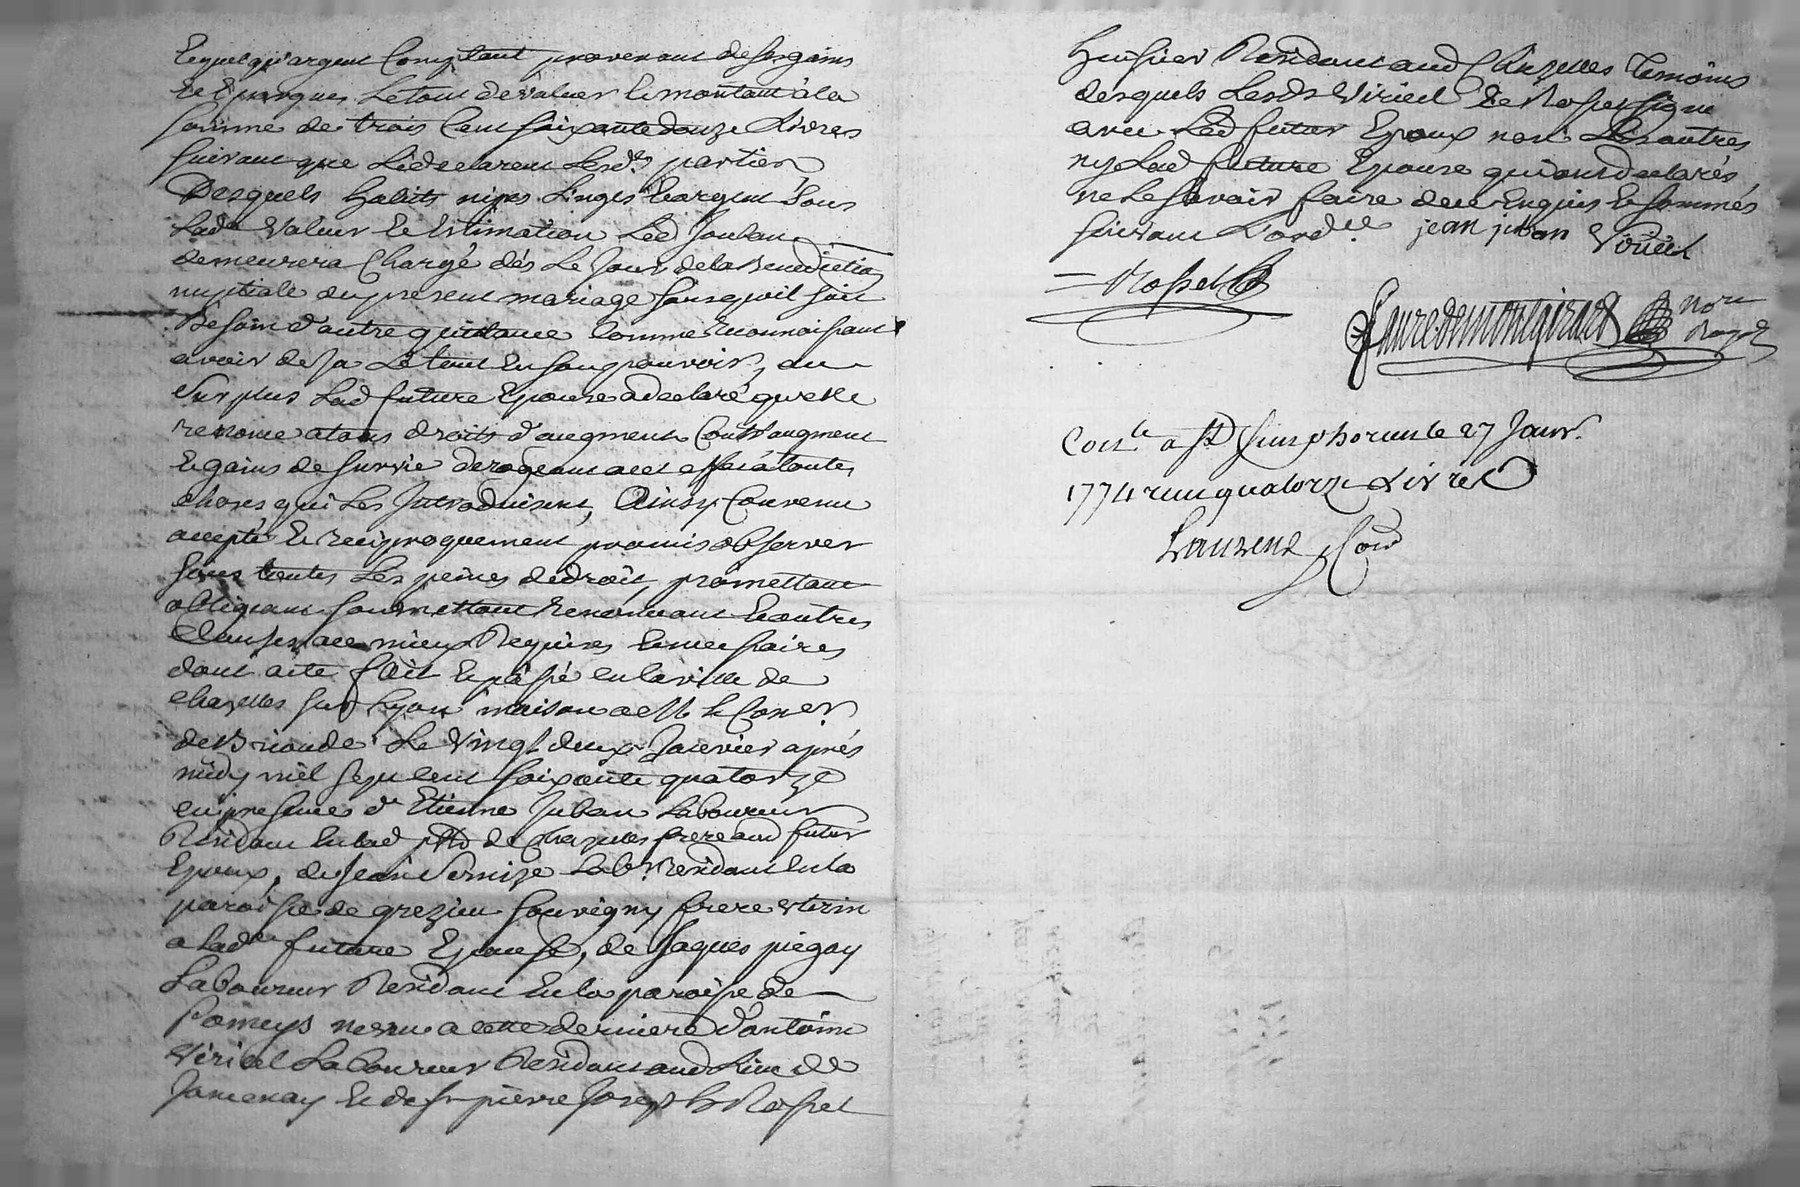 et quelqu'argent Comptant provenant de ses gains
et Epargnes Le tout de valeur Et montant à la
somme de trois Cent soixante douze Livres
suivant que L'ideclarent Lesd.s parties
Desquels habits nipes Linges Et argent sous
Lad.e valeur Et Estimation Led Jouban
demeurera Chargé dés Le Jour de la Benediction
nuptiale du present mariage sans quil soit
Besoin d'autre quittance Comme Reconnoissant
avoir deja Le tout En son pouvoir, au
surplus Lad future Epouse a declaré qu'elle
renonce a tous droits d'augment Contr'augment
Et gains de survie derogeant a cet effet à toutes
choses qui Les Introduisent, Ainsy Convenu
accepté Et reciproquement promis observer
sous toutes Les peines de droit, promettant
obligeant soumettant Renonceant Et autres
Clauses au mieux Requises Et necessaires
dont acte fait Et passé en la ville de
chazelles sur Lyon maison de M le Comer
de Brioude Le Vingt deux Janvier aprés
midy mil sept cent soixante quatorze
en presence d'Etienne Juban Laboureur
Residant En lad de Chazelles frere aud futur
Epoux, de Jean Lab.r Residant En la
paroisse de grezieu souvigny frere uterin
a lad.e future Epouse, de Jaques piegay
Laboureur Residant En la paroisse de
Pomeys neveu a cette derniere d'antoine
Viricel Laboureur Residant aud Lieu de
Jamenay Et de Sr pierre Joseph Rosset
huissier Residant aud Chazelles Temoins
desquels Lesds Viricel Et Rosset signe
avec Led futur Epoux non Les autres
ny Lad future Epouse qui ont declarés
ne le savoir faire de ce Enquis Et sommés
suivant L'ord.ce jean juban Viricel
Rosset
Fauredemontgirard no.re
Royal
Con.lé a St Simphorien le 27 Janv.r
1774 reçu quatorze Livres
Laurens